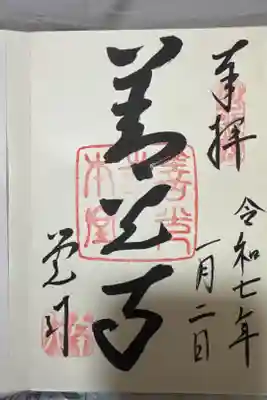 奉拝
令和七年
一月二日
善光寺
善光
寺
本堂